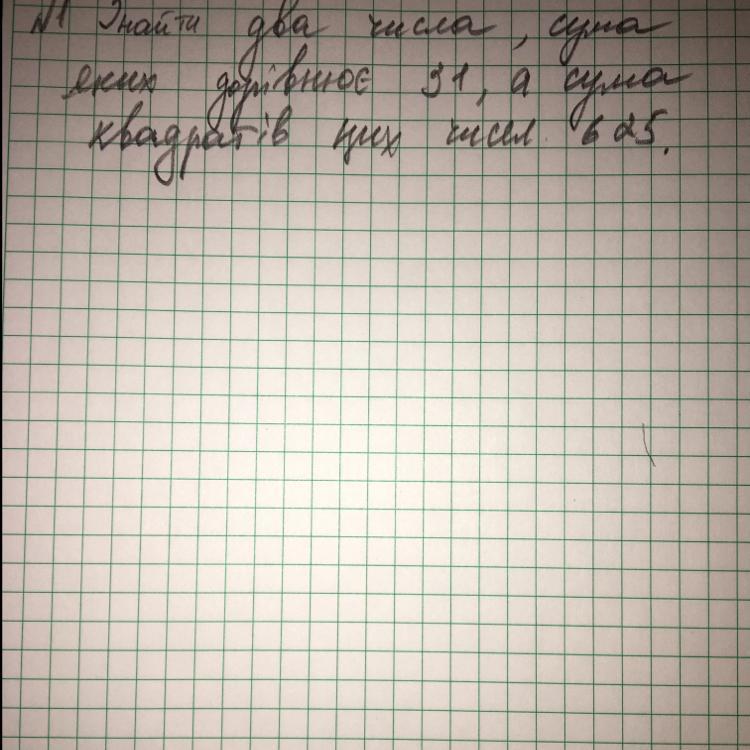 №1 Знайти два числа, сума
яких дорівнює 31, а сума
квадратів цих чисел 625.